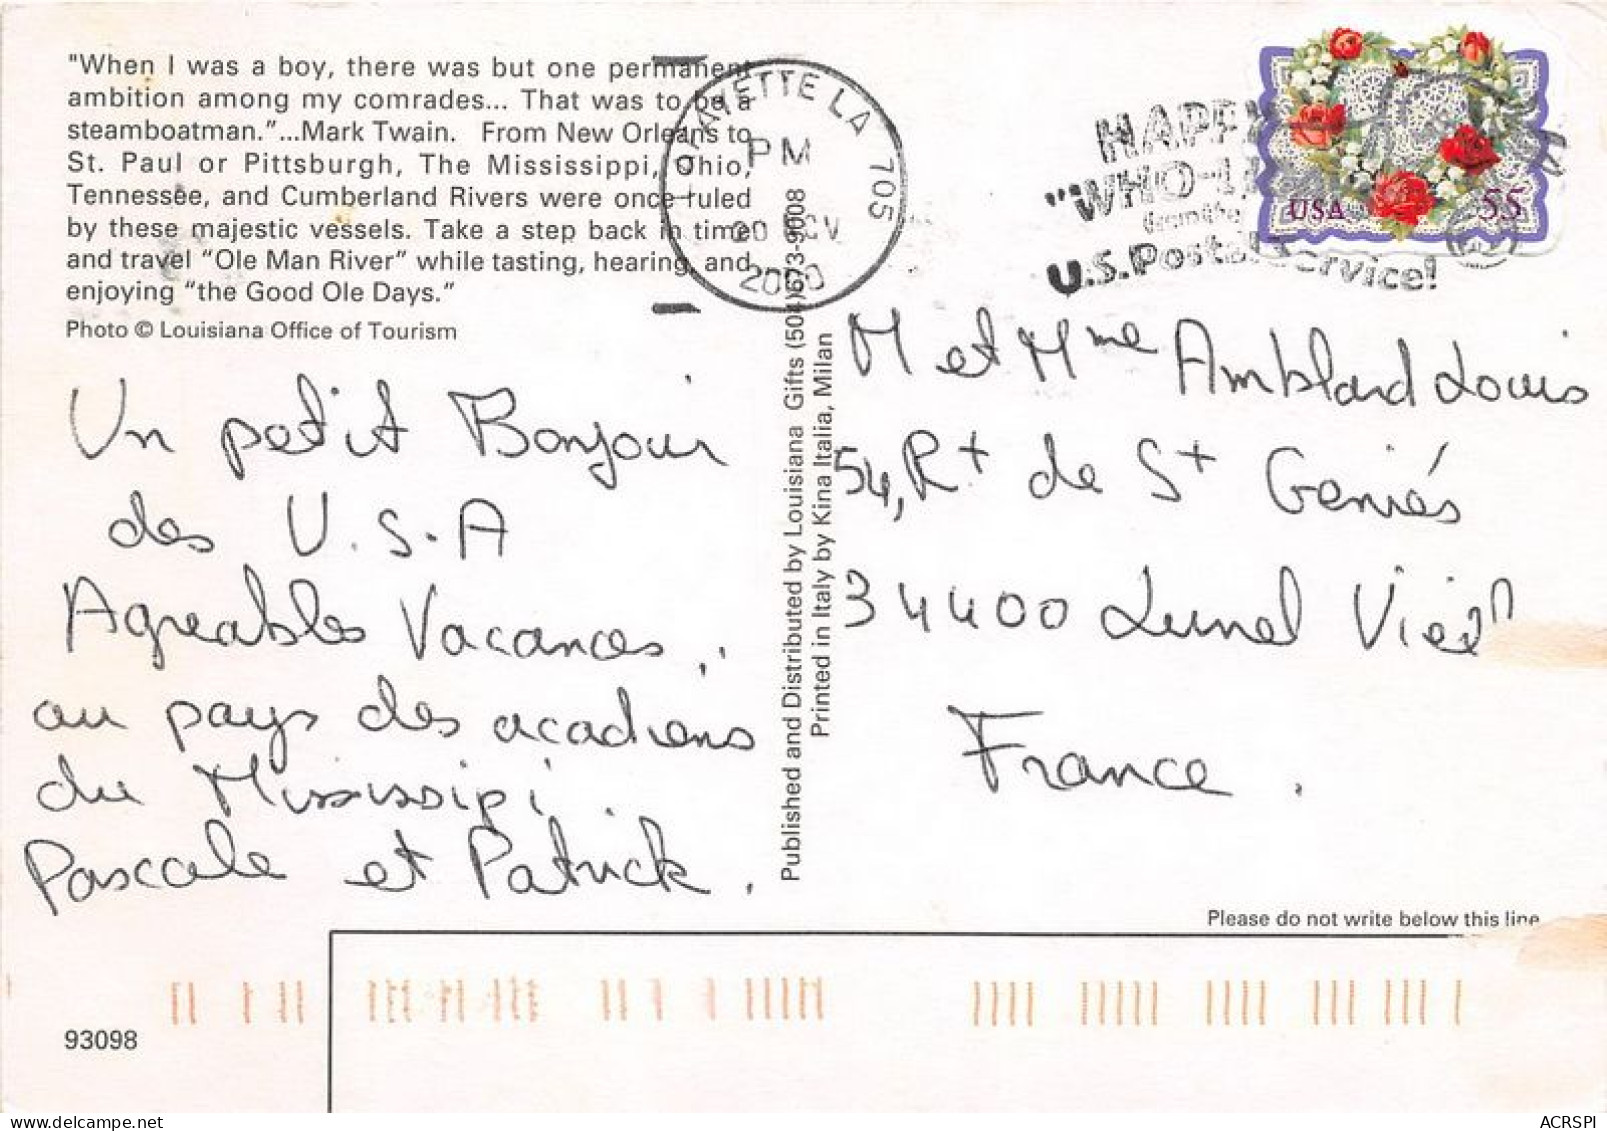 "When I was a boy, there was but one permanent
ambition among my comrades... That was to be a
steamboatman."...Mark Twain. From New Orleans to
St. Paul or Pittsburgh, The Mississippi, Ohio,
Tennessee, and Cumberland Rivers were once ruled
by these majestic vessels. Take a step back in time
and travel "Ole Man River" while tasting, hearing, and
enjoying "the Good Ole Days."
Photo © Louisiana Office of Tourism
LAFAYETTE LA 705
PM
2000
HAPPY
"WHO-
from the
U.S. Postal Service!
USA 55
Un petit Bonjour
des U.S.A
Agreables Vacances
au pays des acadiens
du Mississipi.
Pascale et Patrick.
Published and Distributed by Louisiana Gifts (504)673-9008
Printed in Italy by Kina Italia, Milan
M et Mme Amblard Louis
54, Rt de St Geniés
34400 Lunel Viel
France.
Please do not write below this line
93098
ACRSPI